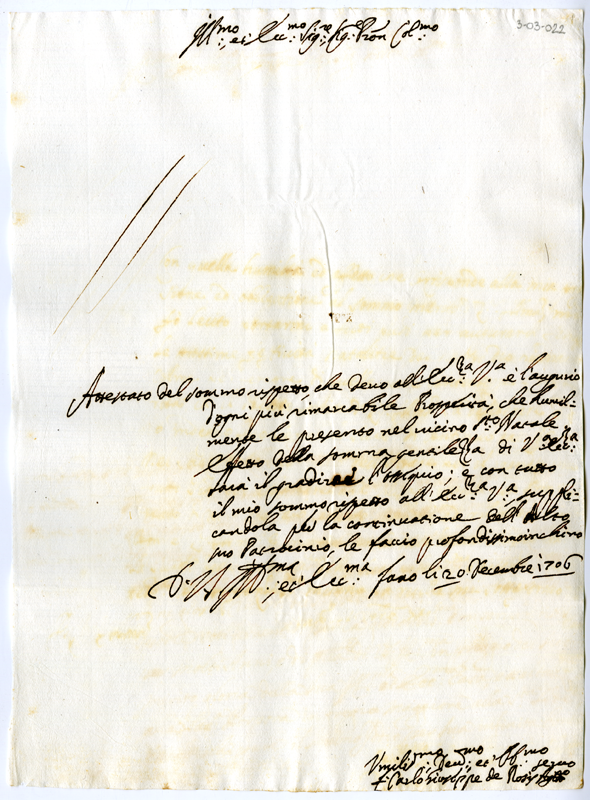 3-03-022
Ill:mo et Ecc:mo Sig:re Sig:re Pron Col:mo
Attestato del sommo rispetto, che devo all'Ecc:za V:a è l'augurio
d'ogni più rimarcabile Prosperità, che humil-
mente le presento nel vicino S:to Natale
effetto della somma gentilezza di V: Ecc:za
sarà il gradire l'ossequio; e con tutto
il mio sommo rispetto all'Ecc:za V:a suppli-
candola per la continuatione dell'Alto
suo Patrocinio, le faccio profondissimo inchino
D. V. Ill:ma, et Ecc:ma fano li 20 Decembre 1706
Umilis:mo Dev:mo et Obb:mo servo
f. Carlo Giuseppe de